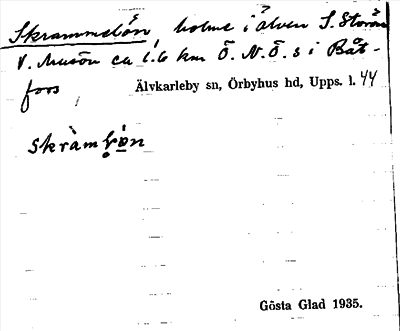 Skrammelön, holme i älven S. Storön
V. Musön ca 1.6 km Ö.N.Ö.s i Båt-
fors Älvkarleby sn, Örbyhus hd, Upps. l. 44
skràm
Gösta Glad 1935.